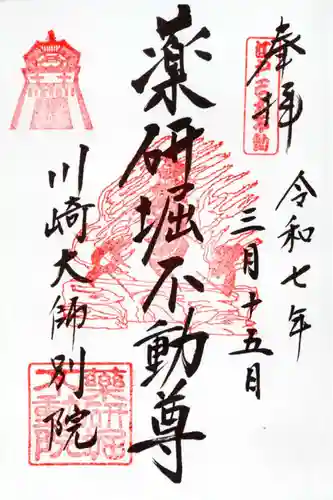 奉拝
令和七年
三月十五日
薬研堀不動尊
川崎大師別院
薬研堀
不動院